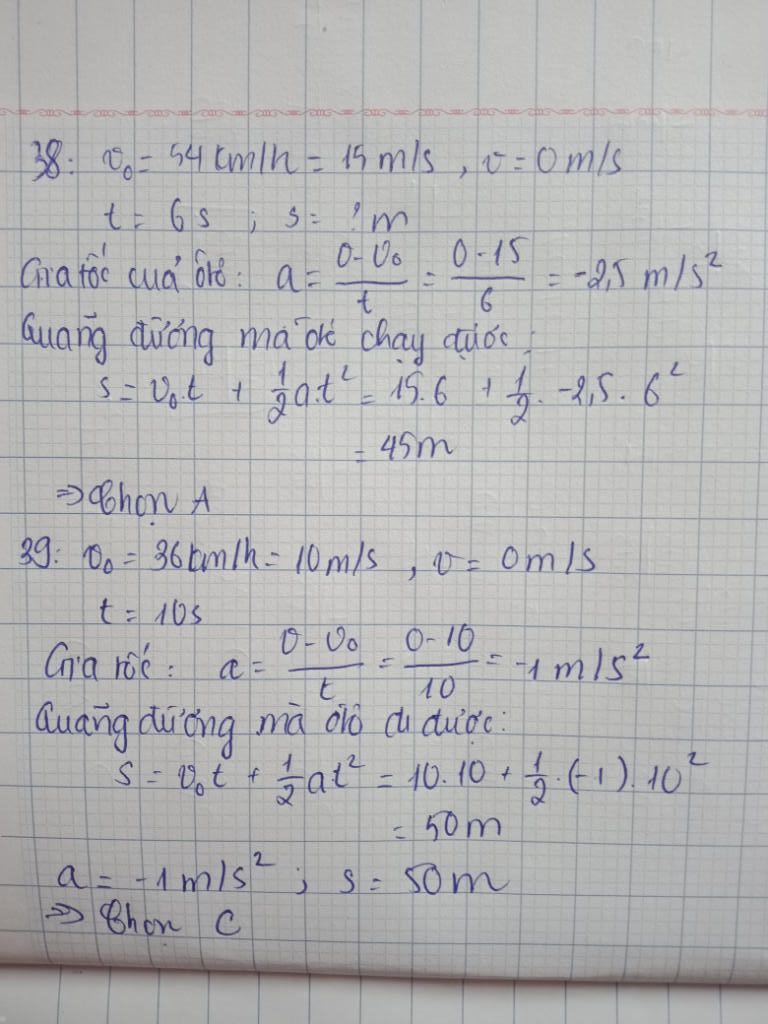 38: v₀ = 54 km/h = 15 m/s , v = 0 m/s
t = 6 s ; s = ? m
Gia tốc của ôtô: a = (0 - v₀)/t = (0 - 15)/6 = -2,5 m/s²
Quãng đường mà ôtô chạy được:
s = v₀.t + 1/2 a.t² = 15.6 + 1/2 . -2,5 . 6²
= 45m
⇒ Chọn A
39: v₀ = 36 km/h = 10 m/s , v = 0 m/s
t = 10s
Gia tốc: a = (0 - v₀)/t = (0 - 10)/10 = -1 m/s²
Quãng đường mà ôtô đi được:
s = v₀t + 1/2 at² = 10.10 + 1/2 .(-1). 10²
= 50m
a = -1 m/s² ; s = 50m
⇒ Chọn C